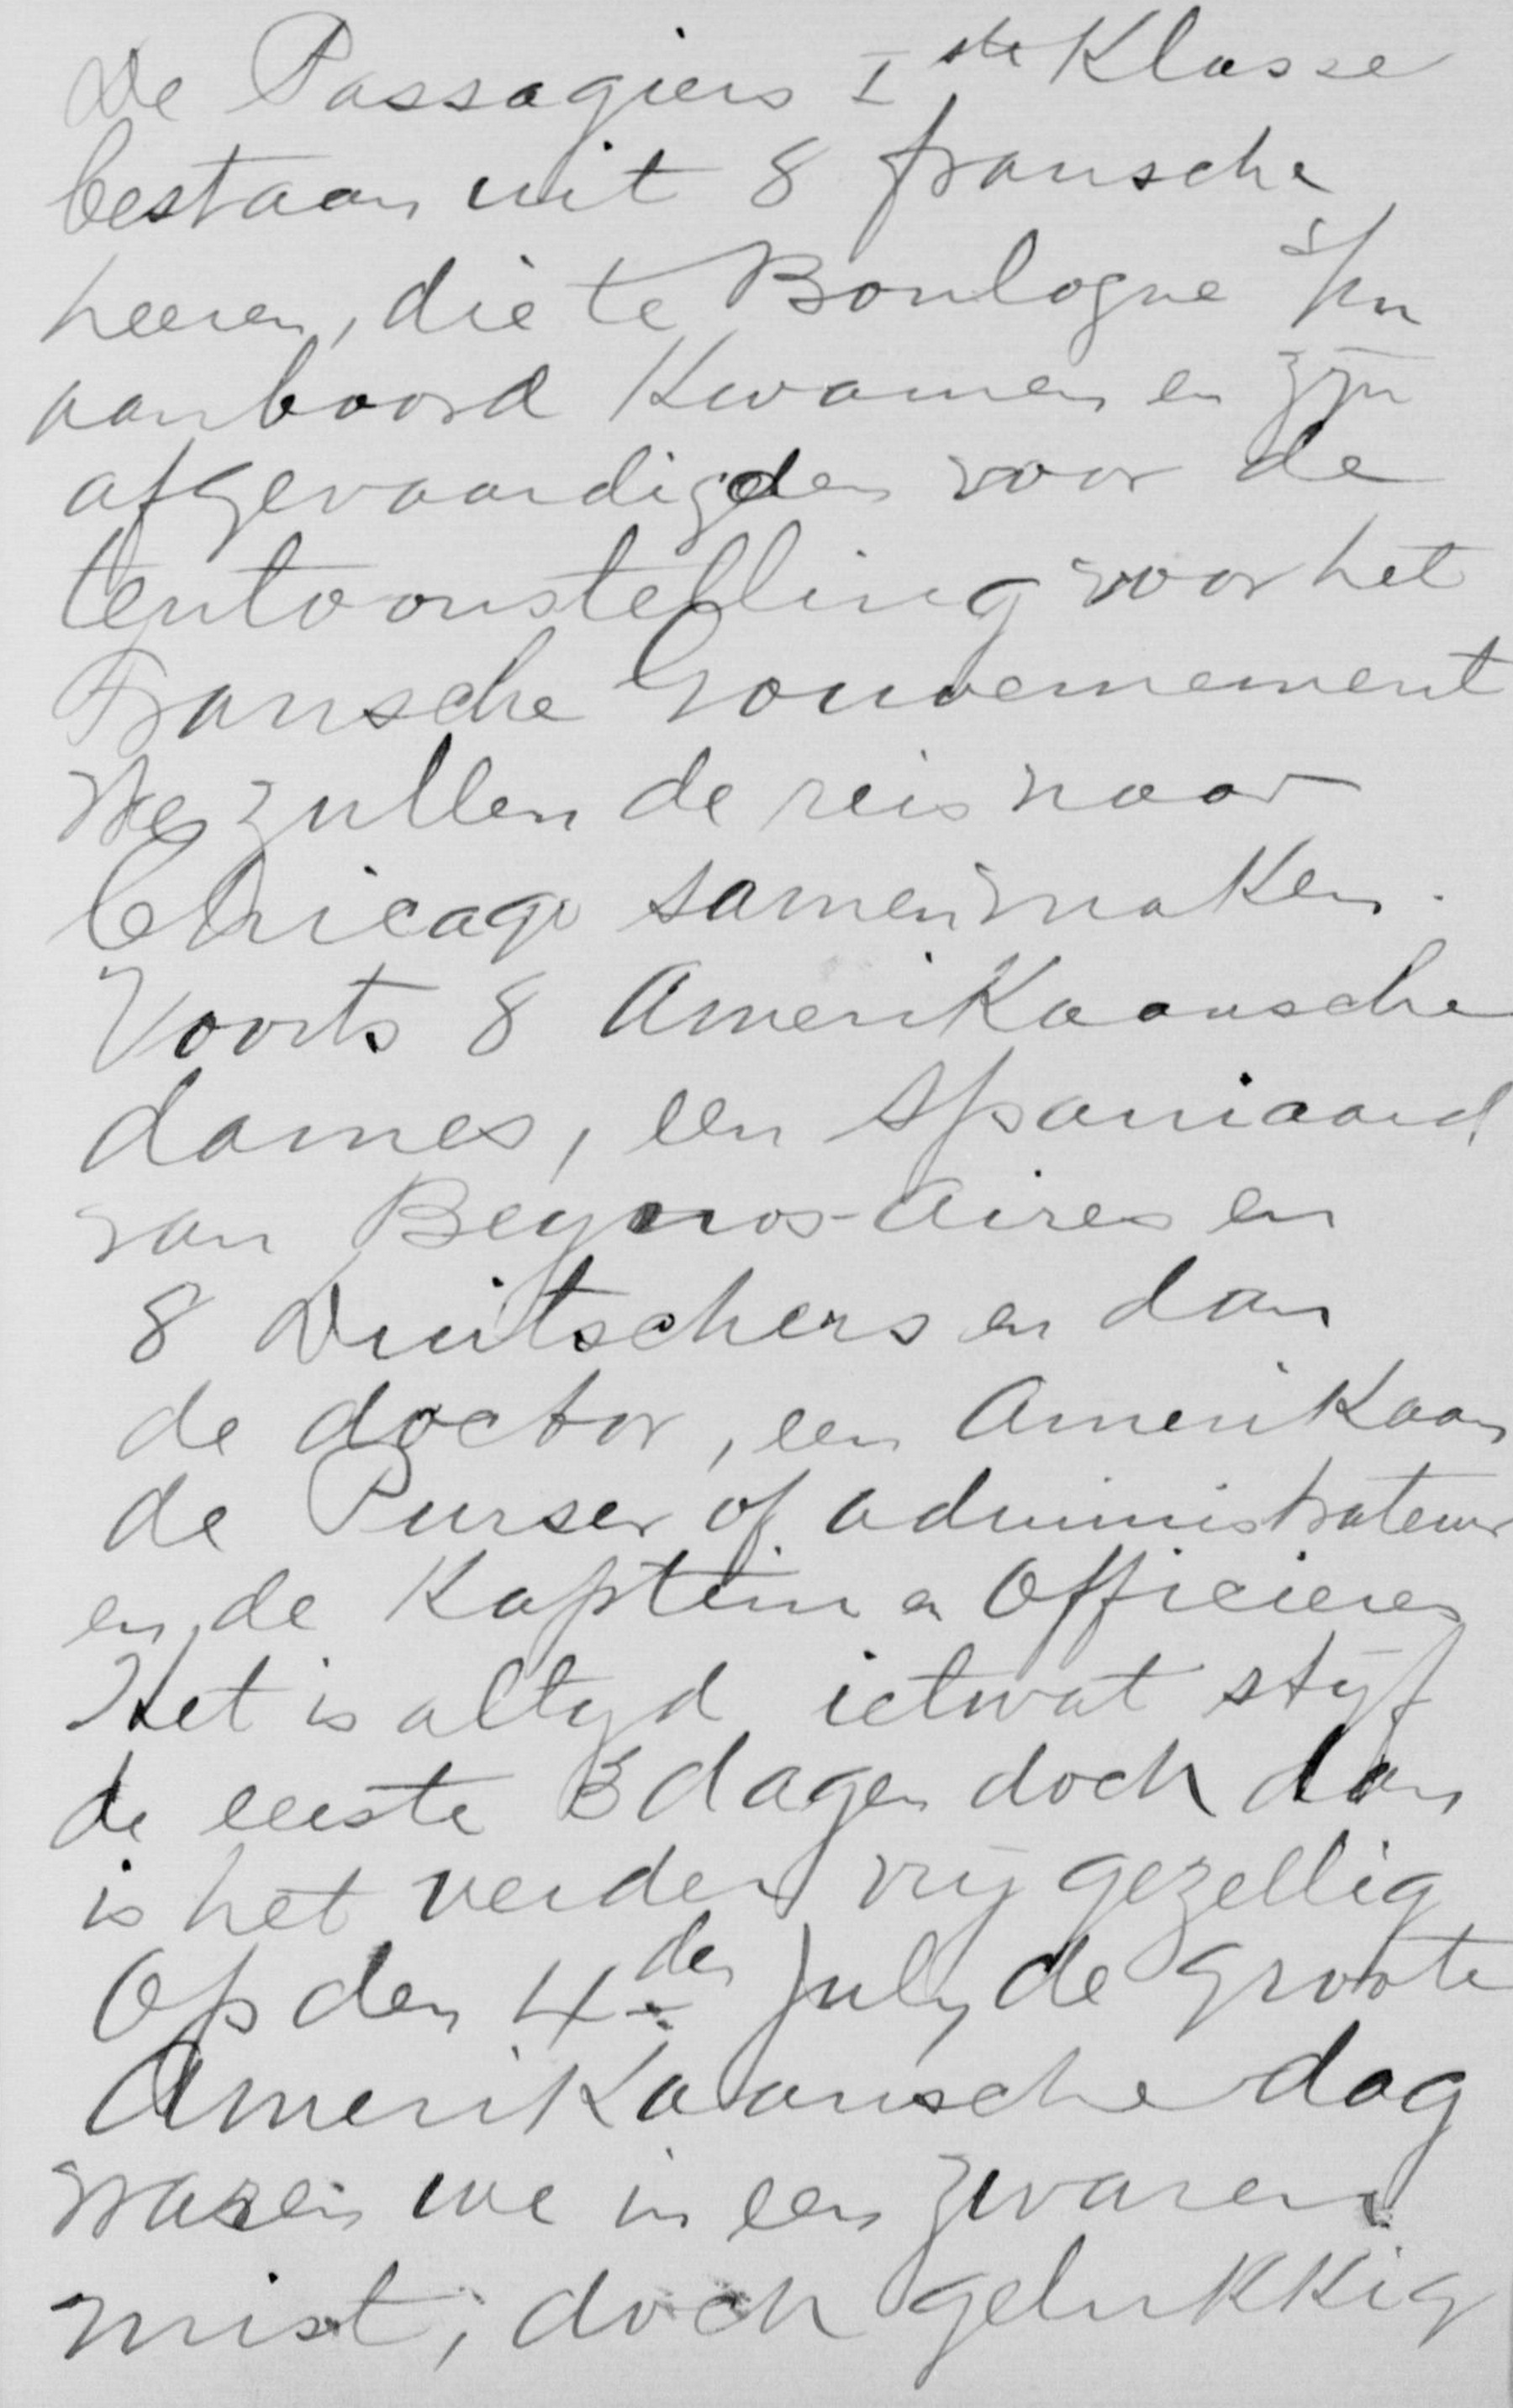 De Passagiers Iste Klasse
bestaan uit 8 fransche
heeren, die te Boulogne s/m
aanboord kwamen en zijn
afgevaardigden voor de
tentoonstelling voor het
Fransche Gouvernement
We zullen de reis naar
Chicago samen maken.
Voorts 8 Amerikaansche
dames, een Spaniaard
van Beynos-Aires en
8 Duitschers en dan
de doctor, een Amerikaan
de Purser of administrateur
en de Kaptein en Officieren
Het is altyd ietwat styf
de eerste 3 dagen doch dan
is het verder vrij gezellig
Op den 4den July de groote
Amerikaansche dag
waren we in een zwaren
mist, doch gelukkig